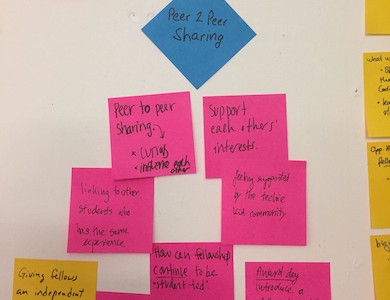 Peer 2 Peer
Sharing
Peer to peer
sharing.
* curios
* influence each
other
Support
each others'
interests.
linking to other
students who
has the same
experience.
feeling supported
or the techie
kid community
How can fellowship
continue to be
"student-led"
Giving fellows
an independent
Award day
introduce a
what w
Opp.
fello
big